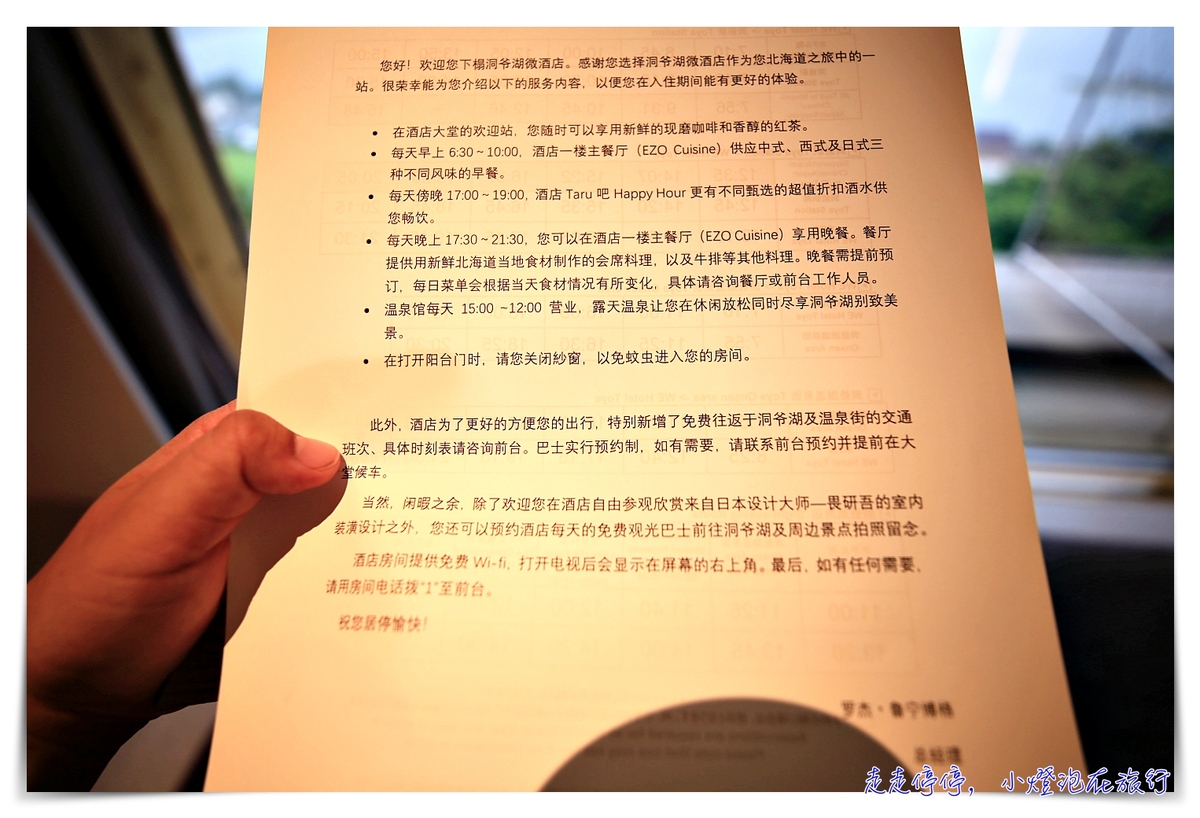 您好！欢迎您下榻洞爷湖微酒店。感谢您选择洞爷湖微酒店作为您北海道之旅中的一
站。很荣幸能为您介绍以下的服务内容，以便您在入住期间能有更好的体验。
• 在酒店大堂的欢迎站，您随时可以享用新鲜的现磨咖啡和香醇的红茶。
• 每天早上 6:30 ~ 10:00，酒店一楼主餐厅（EZO Cuisine）供应中式、西式及日式三
种不同风味的早餐。
• 每天傍晚 17:00 ~ 19:00, 酒店 Taru 吧 Happy Hour 更有不同甄选的超值折扣酒水供
您畅饮。
• 每天晚上 17:30 ~ 21:30，您可以在酒店一楼主餐厅（EZO Cuisine）享用晚餐。餐厅
提供用新鲜北海道当地食材制作的会席料理，以及牛排等其他料理。晚餐需提前预
订，每日菜单会根据当天食材情况有所变化，具体请咨询餐厅或前台工作人员。
• 温泉馆每天 15:00 ~12:00 营业，露天温泉让您在休闲放松同时尽享洞爷湖别致美
景。
• 在打开阳台门时，请您关闭紗窗，以免蚊虫进入您的房间。
此外，酒店为了更好的方便您的出行，特别新增了免费往返于洞爷湖及温泉街的交通
班次、具体时刻表请咨询前台。巴士实行预约制，如有需要，请联系前台预约并提前在大
堂候车。
当然，闲暇之余，除了欢迎您在酒店自由参观欣赏来自日本设计大师—畏研吾的室内
装潢设计之外，您还可以预约酒店每天的免费观光巴士前往洞爷湖及周边景点拍照留念。
酒店房间提供免费 Wi-fi，打开电视后会显示在屏幕的右上角。最后，如有任何需要，
请用房间电话拨“1”至前台。
祝您居停愉快！
罗杰·鲁宁博格
总经理
走走停停，小燈泡在旅行